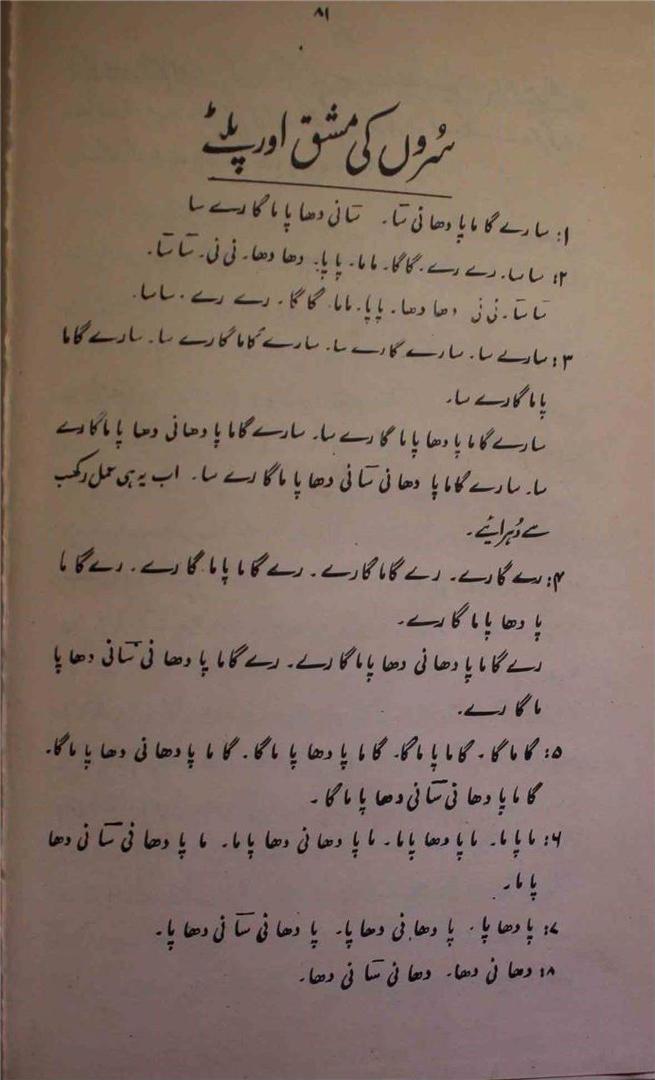 ۸۱
سُروں کی مشق اور پلٹے
۱: سا رے گا ما پا دھا نی سَا۔ سَا نی دھا پا ما گا رے سا
۲: سا سا۔ رے رے۔ گا گا۔ ما ما۔ پا پا۔ دھا دھا۔ نی نی۔ سَا سَا۔
سَا سَا۔ نی نی دھا دھا۔ پا پا۔ ما ما۔ گا گا۔ رے رے۔ سا سا۔
۳: سا رے سا۔ سا رے گا رے سا۔ سا رے گا ما گا رے سا۔ سا رے گا ما
پا ما گا رے سا۔
سا رے گا ما پا دھا پا ما گا رے سا۔ سا رے گا ما پا دھا نی دھا پا ما گا رے
سا۔ سا رے گا ما پا دھا نی سَا نی دھا پا ما گا رے سا۔ اب یہ ہی عمل رکھب
سے دُہرائیے۔
۴: رے گا رے۔ رے گا ما گا رے۔ رے گا ما پا ما گا رے۔ رے گا ما
پا دھا پا ما گا رے۔
رے گا ما پا دھا نی دھا پا ما گا رے۔ رے گا ما پا دھا نی سَا نی دھا پا
ما گا رے۔
۵: گا ما گا۔ گا ما پا ما گا۔ گا ما پا دھا پا ما گا۔ گا ما پا دھا نی دھا پا ما گا۔
گا ما پا دھا نی سَا نی دھا پا ما گا۔
۶: ما پا ما۔ ما پا دھا پا ما۔ ما پا دھا نی دھا پا ما۔ ما پا دھا نی سَا نی دھا
پا ما۔
۷: پا دھا پا۔ پا دھا نی دھا پا۔ پا دھا نی سَا نی دھا پا۔
۸: دھا نی دھا۔ دھا نی سَا نی دھا۔